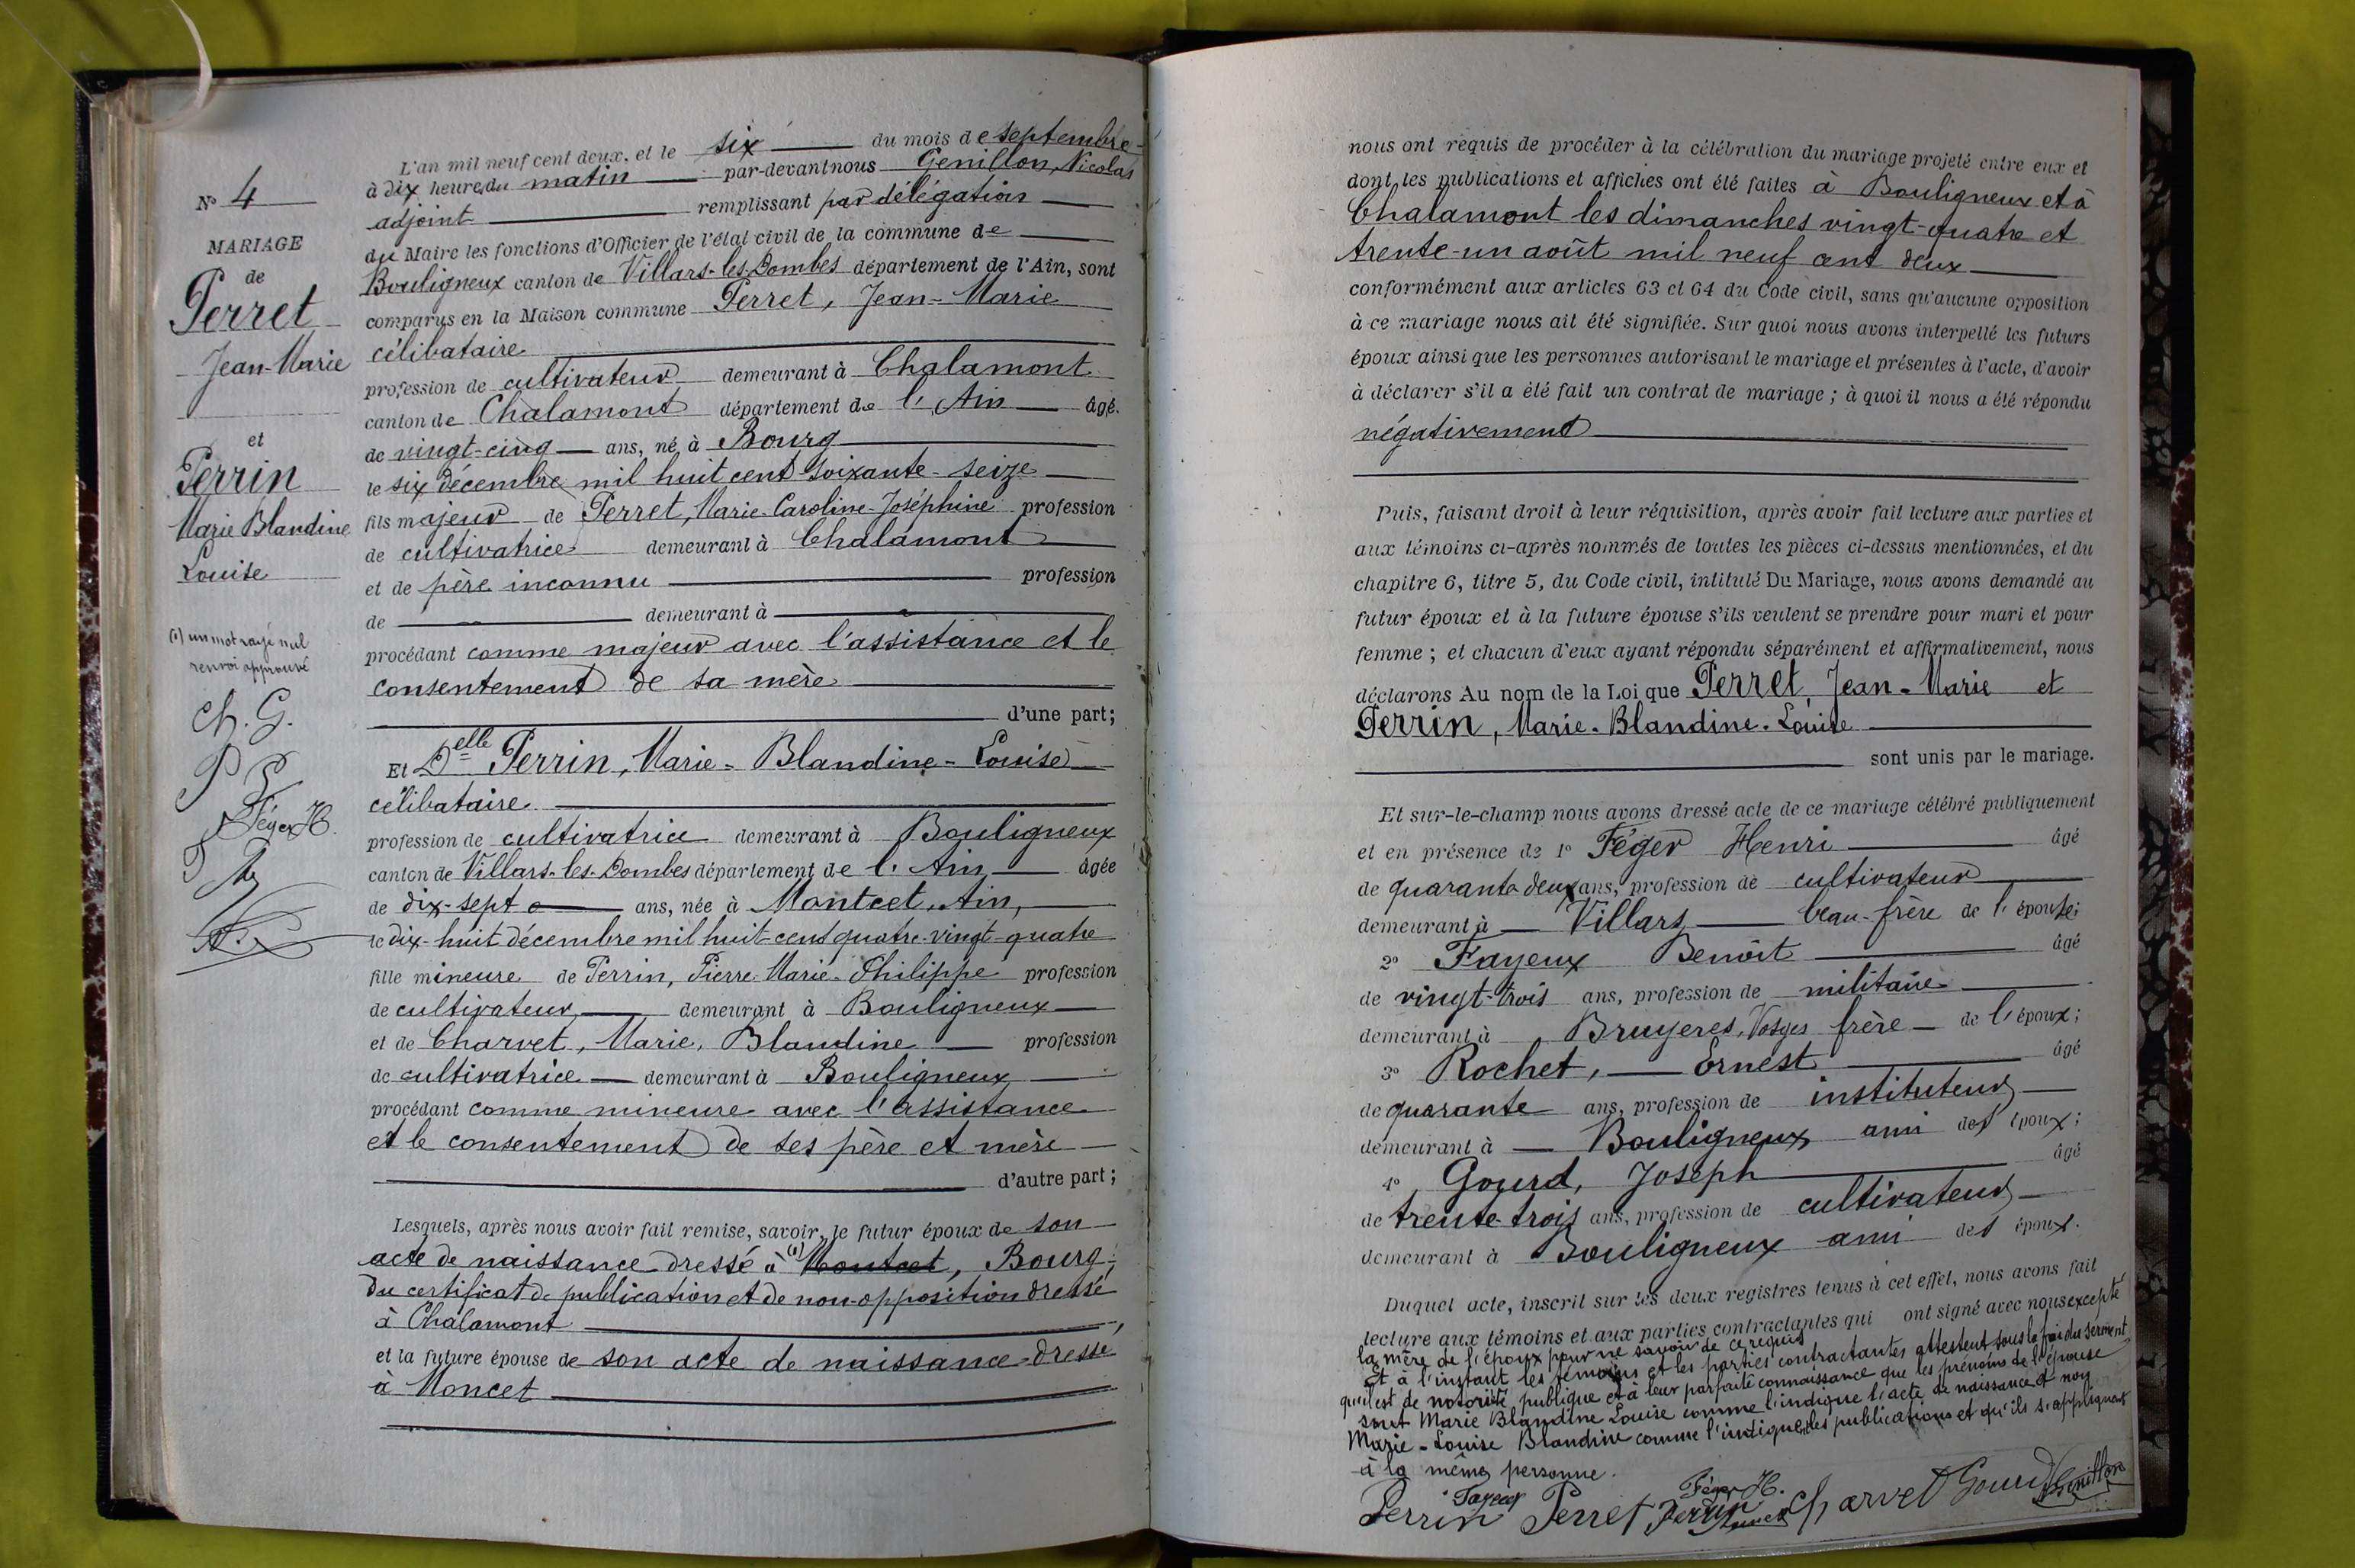 N° 4
MARIAGE
de
Perret
Jean-Marie
et
Perrin
Marie Blandine
Louise
(1) un mot rayé nul
renvoi approuvé
Ch. G.
Féger H.
L'an mil neuf cent deux, et le six du mois de septembre
à dix heures du matin par-devant nous Genillon, Nicolas
adjoint remplissant par délégation
du Maire les fonctions d'Officier de l'état civil de la commune de
Bouligneux canton de Villars-les-Dombes département de l'Ain, sont
comparus en la Maison commune Perret, Jean-Marie
célibataire
profession de cultivateur demeurant à Chalamont
canton de Chalamont département de l'Ain âgé
de vingt-cinq ans, né à Bourg
le six décembre mil huit cent soixante-seize
fils majeur de Perret, Marie-Caroline-Joséphine profession
de cultivatrice demeurant à Chalamont
et de père inconnu profession
de demeurant à
procédant comme majeur avec l'assistance et le
consentement de sa mère
d'une part;
Et Delle Perrin, Marie-Blandine-Louise
célibataire
profession de cultivatrice demeurant à Bouligneux
canton de Villars-les-Dombes département de l'Ain âgée
de dix-sept ans, née à Montcet, Ain,
le dix-huit décembre mil huit cent quatre-vingt-quatre
fille mineure de Perrin, Pierre-Marie-Philippe profession
de cultivateur demeurant à Bouligneux
et de Charvet, Marie, Blandine profession
de cultivatrice demeurant à Bouligneux
procédant comme mineure avec l'assistance
et le consentement de ses père et mère
d'autre part;
Lesquels, après nous avoir fait remise, savoir, le futur époux de son
acte de naissance dressé à (1) Montcet, Bourg;
du certificat de publication et de non-opposition dressé
à Chalamont,
et la future épouse de son acte de naissance dressé
à Moncet
nous ont requis de procéder à la célébration du mariage projeté entre eux et
dont les publications et affiches ont été faites à Bouligneux et à
Chalamont les dimanches vingt-quatre et
trente-un août mil neuf cent deux
conformément aux articles 63 et 64 du Code civil, sans qu'aucune opposition
à ce mariage nous ait été signifiée. Sur quoi nous avons interpellé les futurs
époux ainsi que les personnes autorisant le mariage et présentes à l'acte, d'avoir
à déclarer s'il a été fait un contrat de mariage; à quoi il nous a été répondu
négativement
Puis, faisant droit à leur réquisition, après avoir fait lecture aux parties et
aux témoins ci-après nommés de toutes les pièces ci-dessus mentionnées, et du
chapitre 6, titre 5, du Code civil, intitulé Du Mariage, nous avons demandé au
futur époux et à la future épouse s'ils veulent se prendre pour mari et pour
femme; et chacun d'eux ayant répondu séparément et affirmativement, nous
déclarons Au nom de la Loi que Perret, Jean-Marie et
Perrin, Marie-Blandine-Louise
sont unis par le mariage.
Et sur-le-champ nous avons dressé acte de ce mariage célébré publiquement
et en présence de 1° Féger Henri âgé
de quarante-deux ans, profession de cultivateur
demeurant à Villars beau-frère de l'épouse;
2° Fayeux Benoit âgé
de vingt-trois ans, profession de militaire
demeurant à Bruyeres, Vosges frère de l'époux;
3° Rochet, Ernest âgé
de quarante ans, profession de instituteur
demeurant à Bouligneux ami des époux;
4° Gourd, Joseph âgé
de trente-trois ans, profession de cultivateur
demeurant à Bouligneux ami des époux.
Duquel acte, inscrit sur les deux registres tenus à cet effet, nous avons fait
lecture aux témoins et aux parties contractantes qui ont signé avec nous excepté
la mère de l'époux pour ne savoir de ce requis
Et à l'instant les témoins et les parties contractantes attestent sous la foi du serment
qu'il est de notoriété publique et à leur parfaite connaissance que les prénoms de l'épouse
sont Marie Blandine Louise comme l'indique l'acte de naissance et non
Marie-Louise Blandine comme l'indiquent les publications et qu'ils s'appliquent
à la même personne.
Fayeux Féger H.
Perrin Perret Perrin Charvet Gourd Genillon